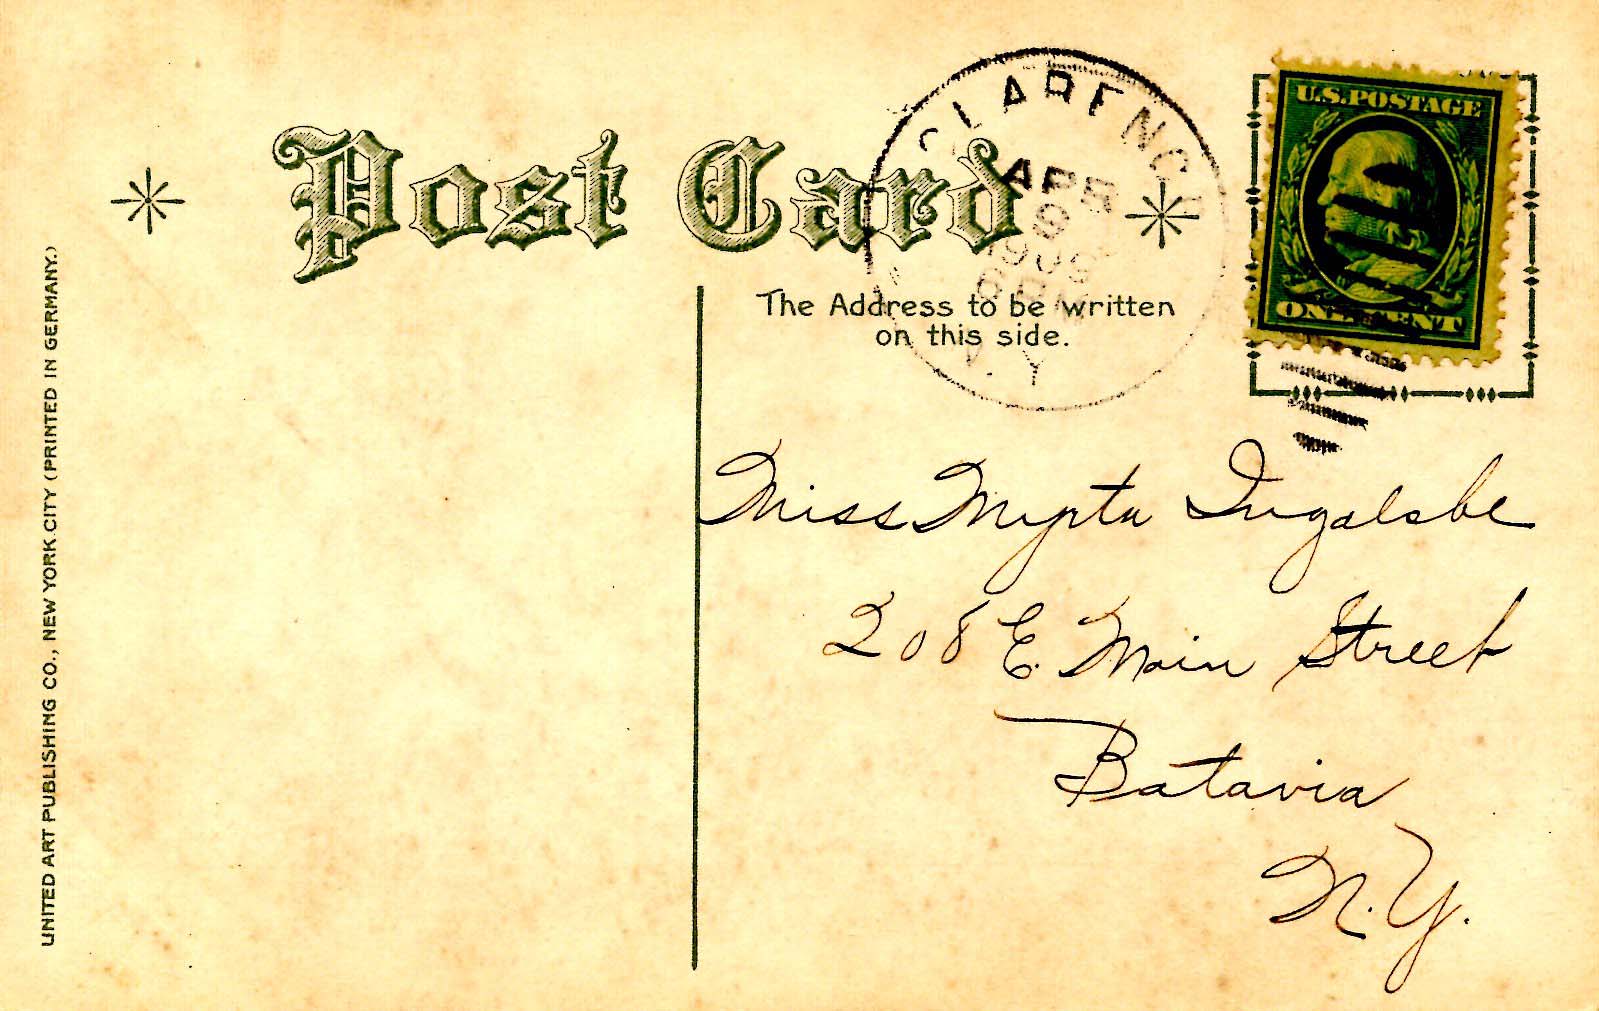 Post Card
CLARENCE
APR
9
1909
N.Y.
U.S.POSTAGE
ONE CENT
The Address to be written
on this side.
Miss Myrta Ingalsbe
208 E. Main Street
Batavia
N.Y.
UNITED ART PUBLISHING CO., NEW YORK CITY (PRINTED IN GERMANY.)